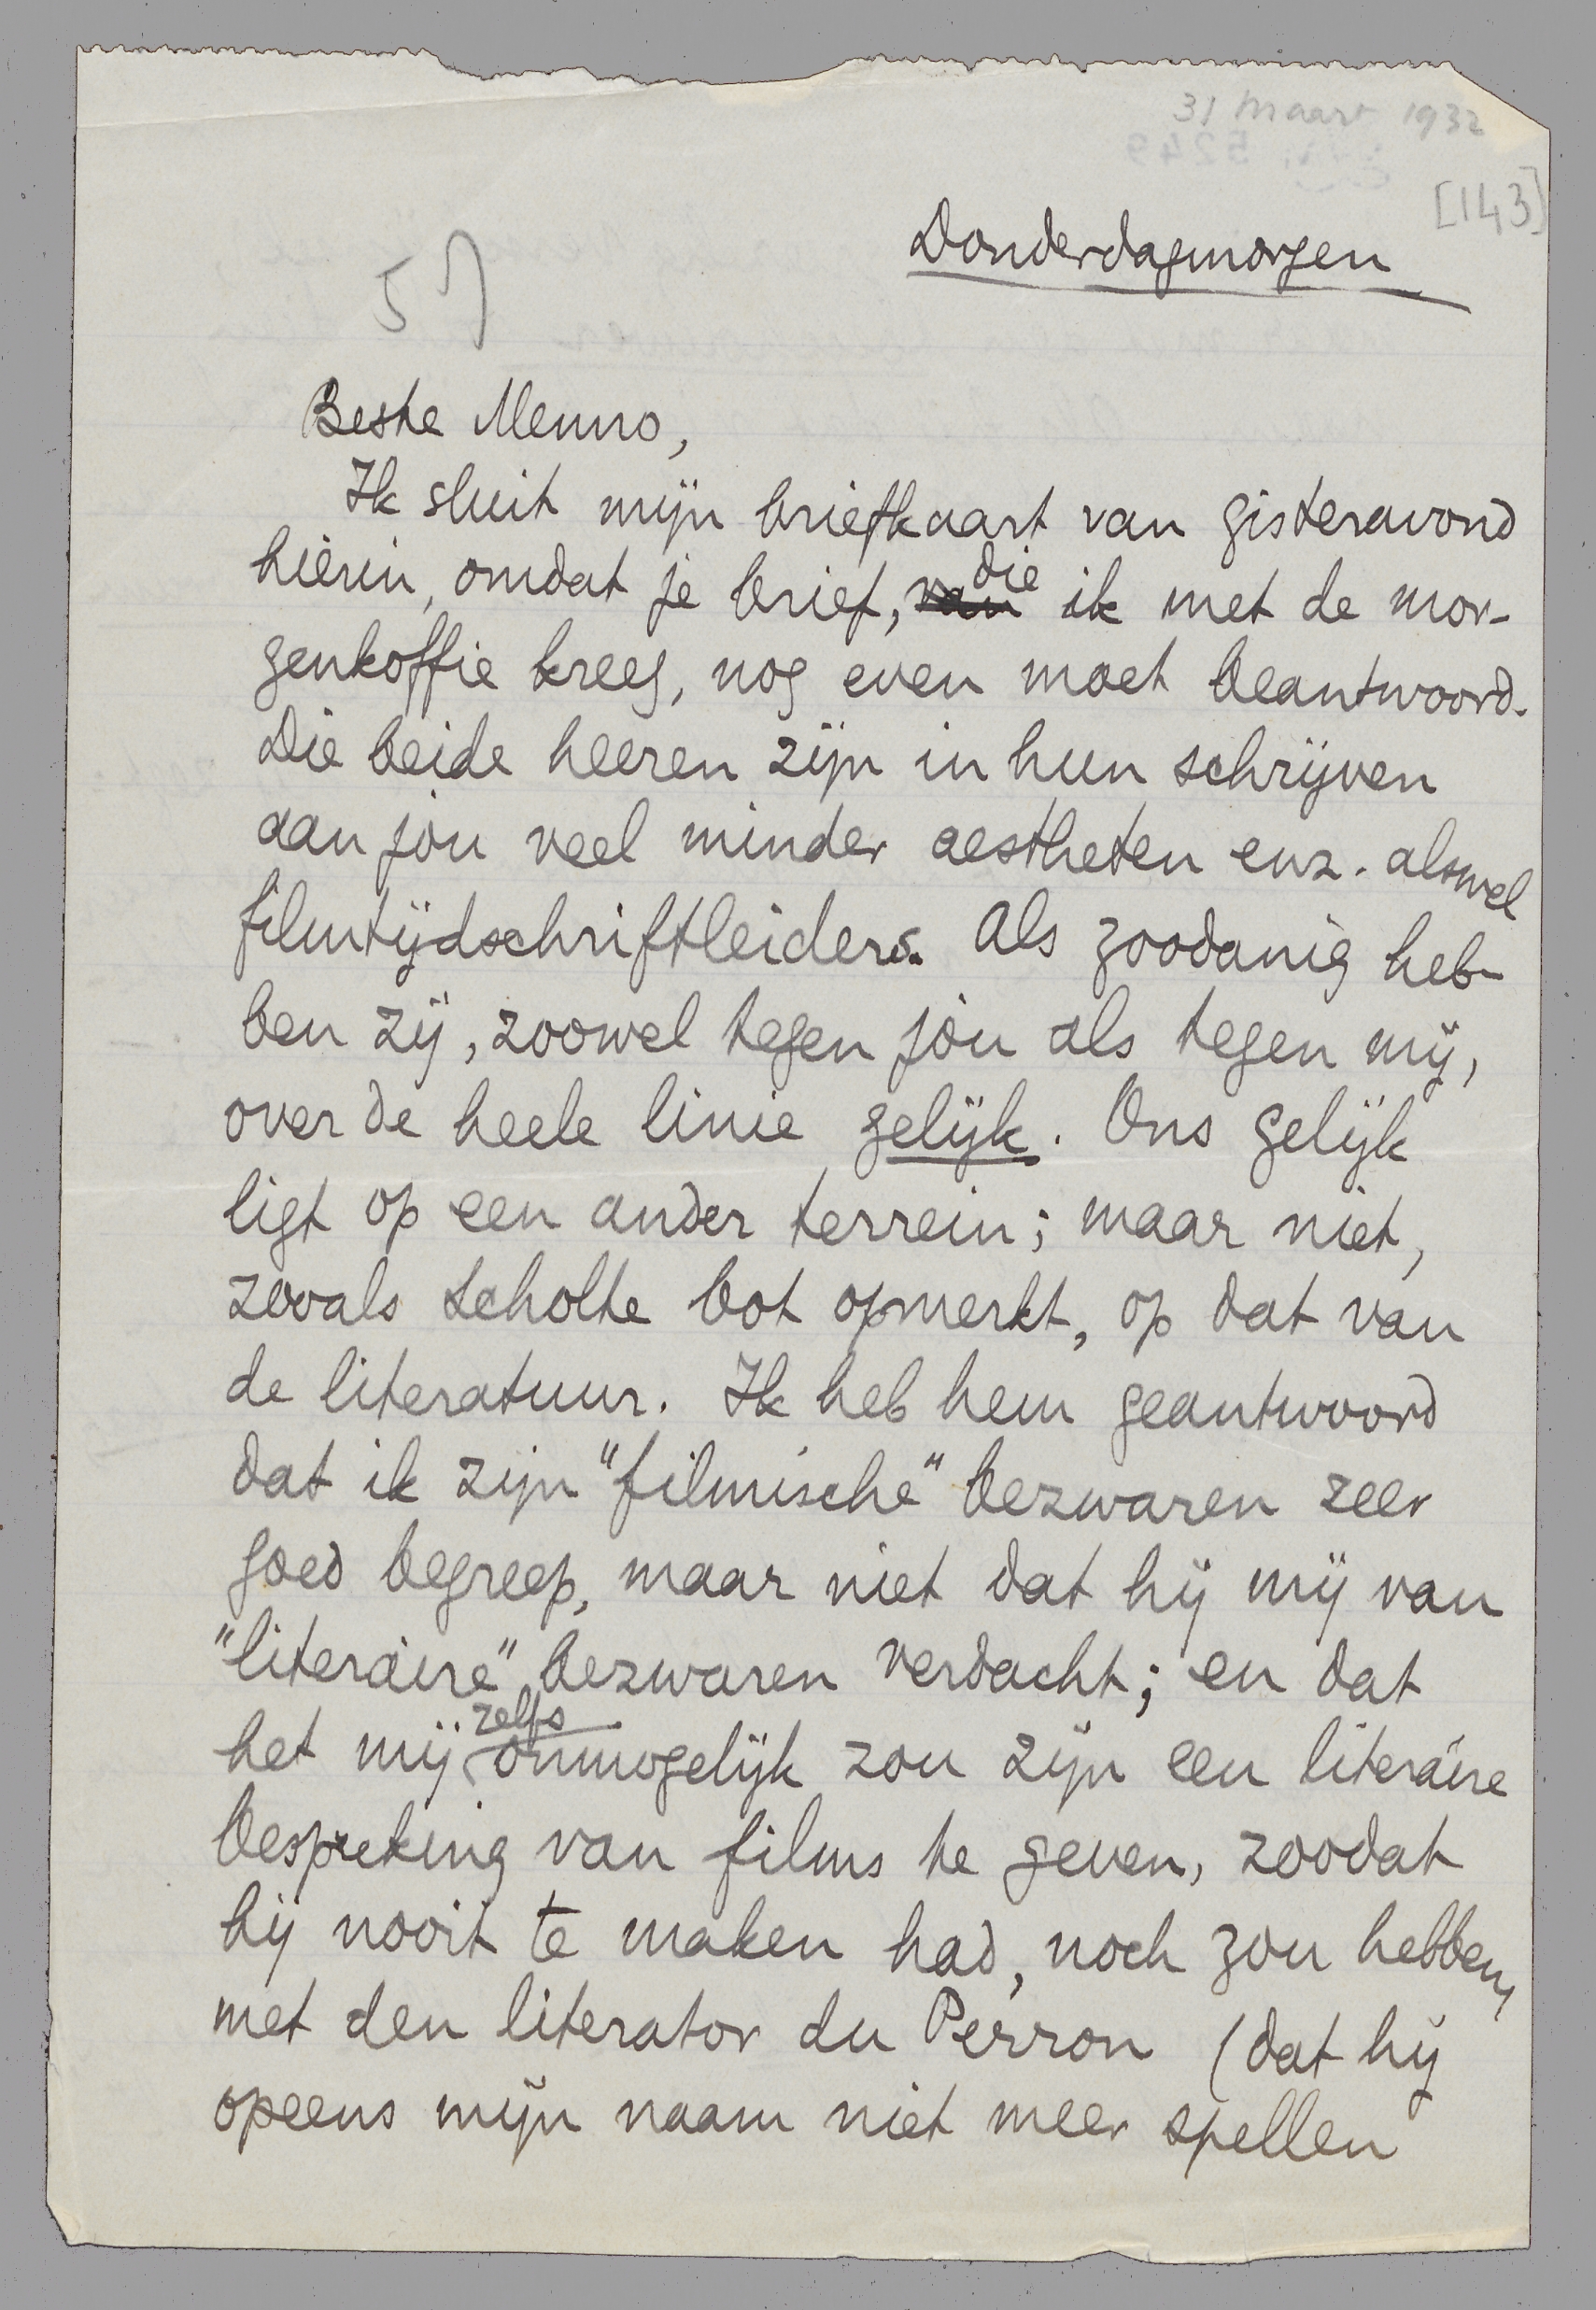 31 Maart 1932
[143]
Donderdagmorgen
Beste Menno,
Ik sluit mijn briefkaart van gisteravond
hierin, omdat je brief, die ik met de mor-
genkoffie kreeg, nog even moet beantwoord.
Die beide heeren zijn in hun schrijven
aan jou veel minder aestheten enz. alswel
filmtijdschriftleiders. Als zoodanig heb-
ben zij, zoowel tegen jóu als tegen mij,
over de heele linie gelijk. Ons gelijk
ligt op een ander terrein; maar niet,
zooals Scholte bot opmerkt, op dat van
de literatuur. Ik heb hem geantwoord
dat ik zijn "filmische" bezwaren zeer
goed begreep, maar niet dat hij mij van
"literaire" bezwaren verdacht; en dat
het mij zelfs onmogelijk zou zijn een literaire
bespreking van films te geven, zoodat
hij nooit te maken had, noch zou hebben,
met den literator du Perron (dat hij
opeens mijn naam niet meer spellen